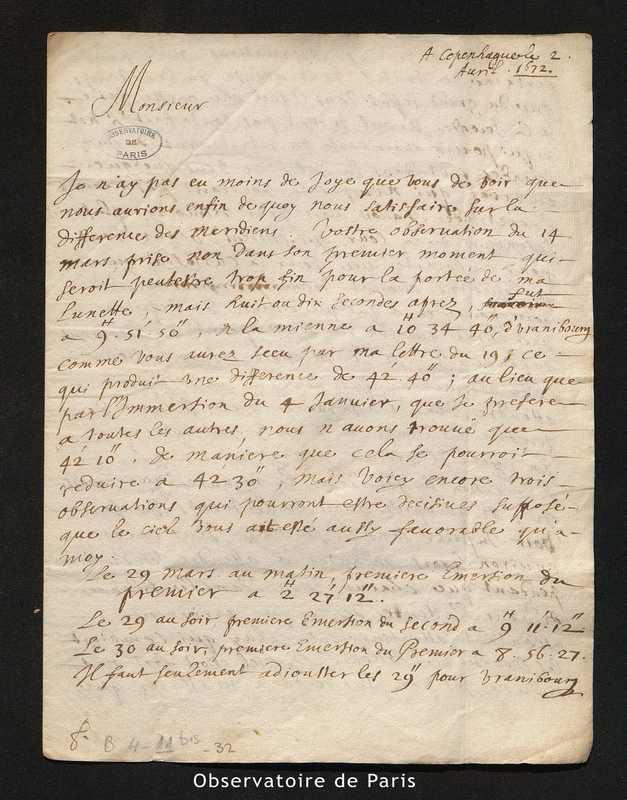 A Copenhague le 2.
Avril . 1672.
Monsieur
OBSERVATOIRE
DE
PARIS
Je n'ay pas eu moins de Joye que vous de voir que
nous aurions enfin dequoy nous satisfaire sur la
difference des meridiens. Vostre observation du 14
mars prise non dans son premier moment qui
seroit peutestre trop fin pour la portée de ma
Lunette, mais huit ou dix secondes aprez, fut
a 9H. 51' 50", & la mienne a 10H 34 40", d'Uranibourg
comme vous aurez sceu par ma lettre du 19; ce
qui produit une difference de 42' 40"; au lieu que
par l'Immersion du 4 Janvier, que Je prefere
a toutes les autres, nous n'avons trouvé que
42' 10". de maniere que cela se pourroit
reduire a 42' 30", mais voicy encore trois
observations qui pourront estre decisives supposé
que le ciel vous ait esté aussy favorable qu'a
moy.
Le 29 mars. au matin, premiere Emersion du
premier a 2H 27' 12".
Le 29 au soir, premiere Emersion du second a 9H 11' 12"
Le 30 au soir, premiere Emersion du Premier a 8. 56. 27.
Il faut seulement adjoutter les 29" pour Uranibourg
B 4-11 bis - 32
Observatoire de Paris